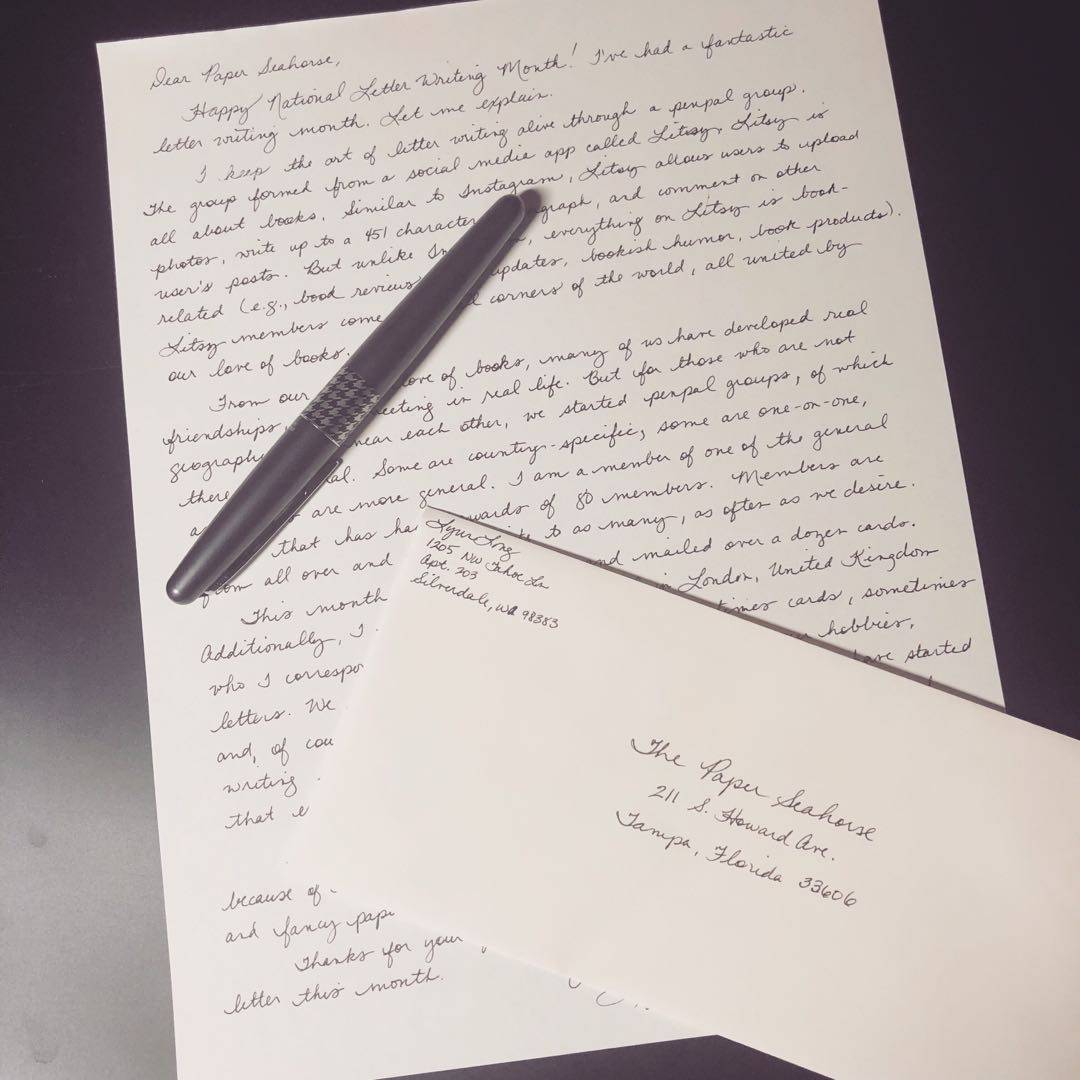 Dear Paper Seahorse,
Happy National Letter Writing Month! I've had a fantastic
letter writing month. Let me explain.
I keep the art of letter writing alive through a penpal group.
The group formed from a social media app called Litsy. Litsy is
all about books. Similar to Instagram, Litsy allows users to upload
photos, write up to a 451 character graph, and comment on other
user's posts. But unlike In , everything on Litsy is book-
related (e.g., book reviews updates, bookish humor, book products).
Litsy members come corners of the world, all united by
our love of books.
From our love of books, many of us have developed real
friendships, eeting in real life. But for those who are not
geograph near each other, we started penpal groups, of which
there al. Some are country-specific, some are one-on-one,
are more general. I am a member of one of the general
that has ha wards of 80 members. Members are
from all over and to as many, as often as we desire.
This month nd mailed over a dozen cards.
Additionally, I in London, United Kingdom
who I correspo times cards, sometimes
letters. We hobbies,
and, of cou have started
writing
that e
because of
and fancy pap
Thanks for your
letter this month.
Long
1205 NW Tahoe Ln
Apt. 203
Silverdale, WA 98383
The Paper Seahorse
211 S. Howard Ave.
Tampa, Florida 33606